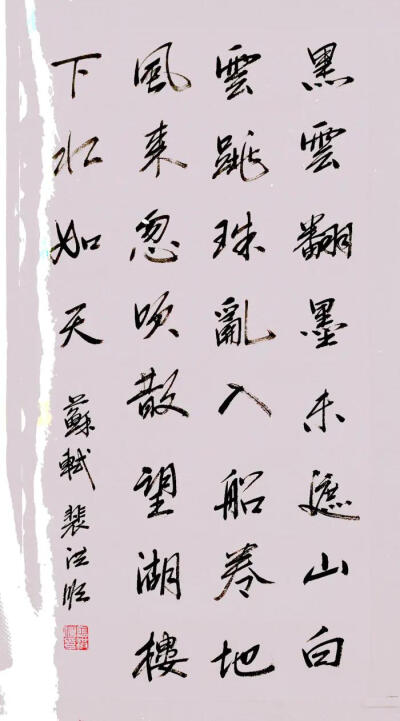 黑雲翻墨未遮山白
雲跳珠亂入船卷地
風来忽吹散望湖樓
下水如天 蘇軾 裴洪順